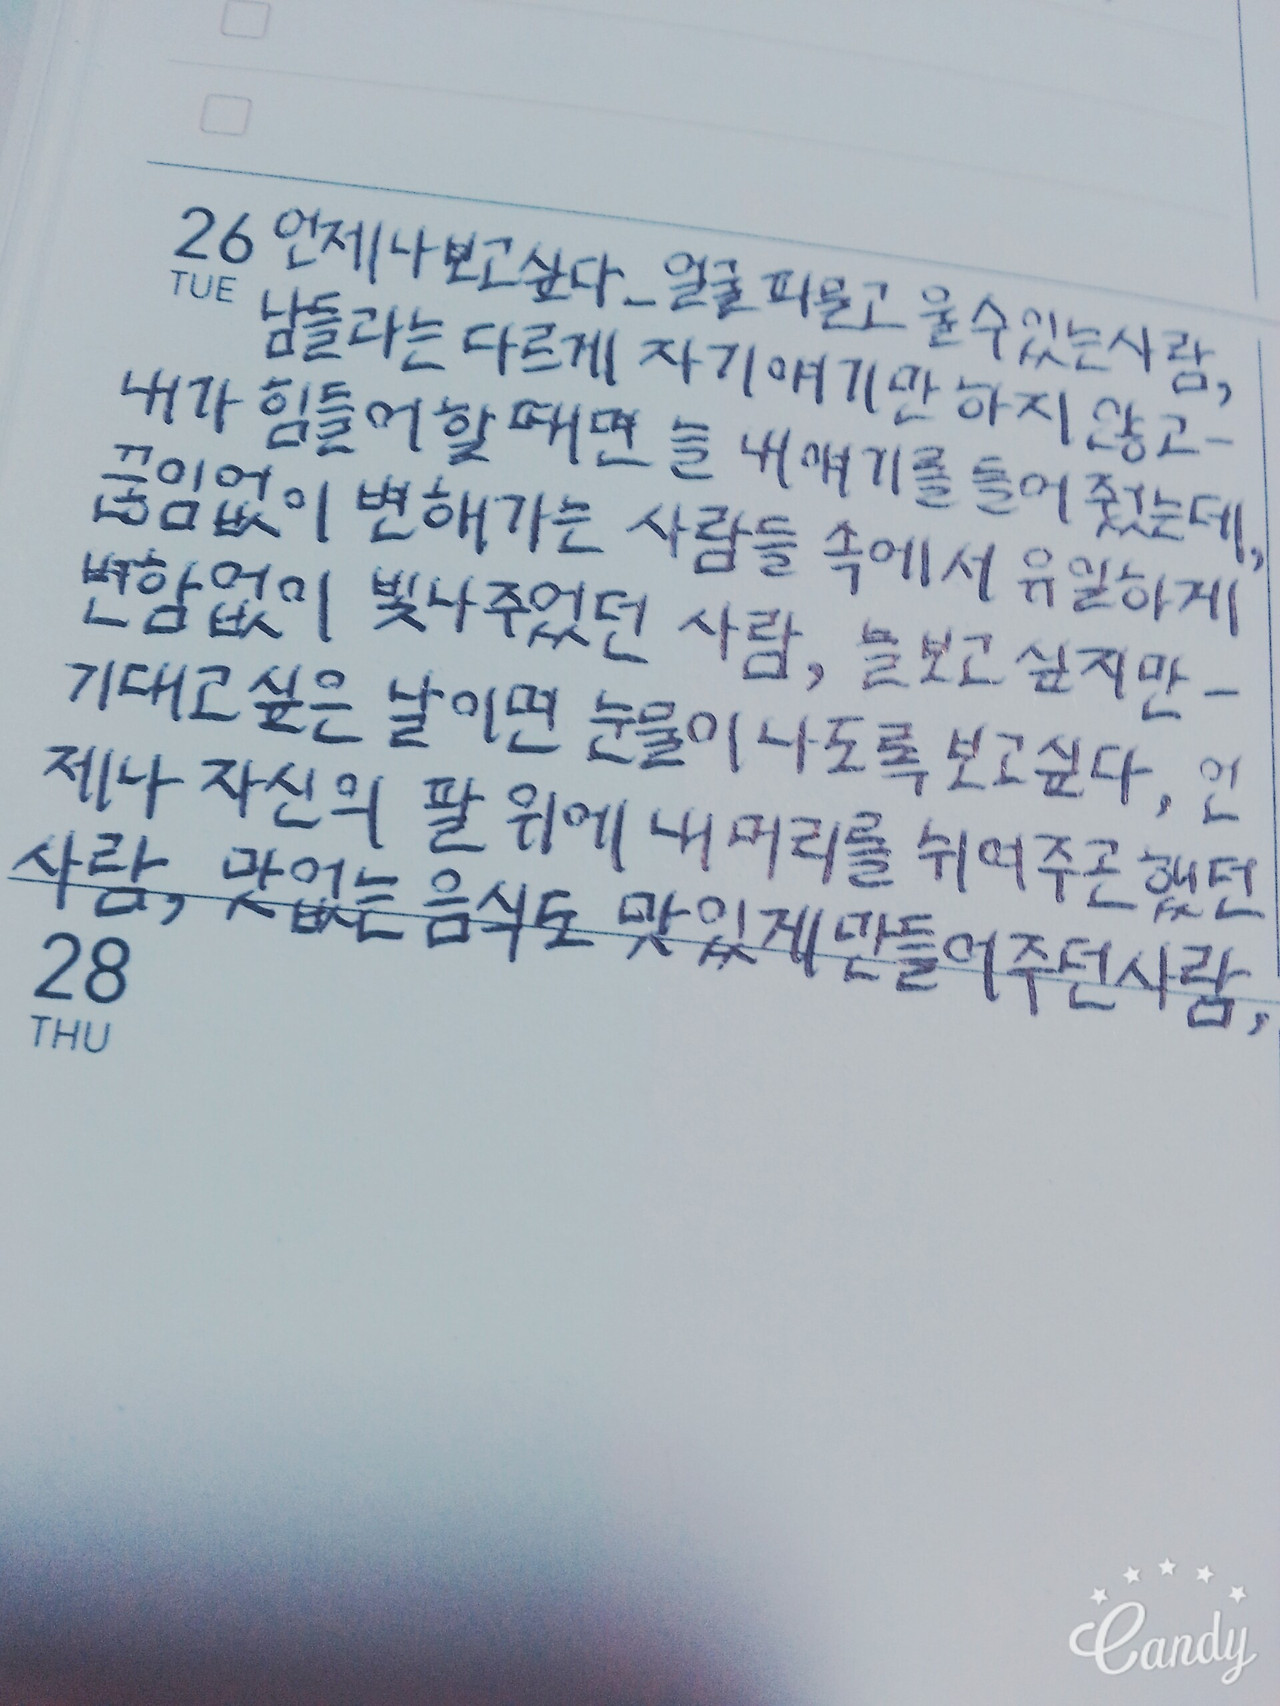 26 언제나보고싶다_얼굴 파묻고 울수있는사람,
TUE
남들과는 다르게 자기얘기만 하지 않고-
내가 힘들어할 때면 늘 내얘기를 들어줬는데,
끊임없이 변해가는 사람들 속에서 유일하게
변함없이 빛나주었던 사람, 늘보고싶지만-
기대고싶은 날이면 눈물이나도록보고싶다, 언
제나 자신의 팔 위에 내머리를 쉬여주곤했던
사람, 맛없는음식도 맛있게만들어주던사람,
28
THU
Candy